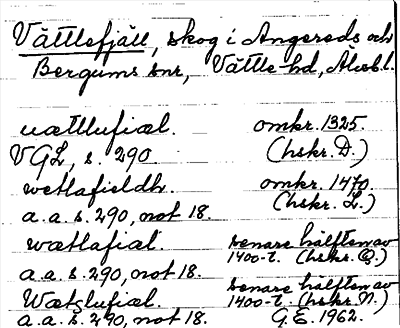 Vättlefjäll, skog i Angereds och
Bergums snr, Vättle hd, Älvsb.l.
uætllufiæl. omkr. 1325.
VGL, s. 290. (hskr. D.)
wetlafieldh. omkr. 1470.
a.a. s. 290, not 18. (hskr. L.)
wætlafiæl. senare hälften av
a.a. s. 290, not 18. 1400-t. (hskr. Q.)
Wætzlufiæl. senare hälften av
a.a. s. 290, not 18. 1400-t. (hskr. N.)
G.E. 1962.